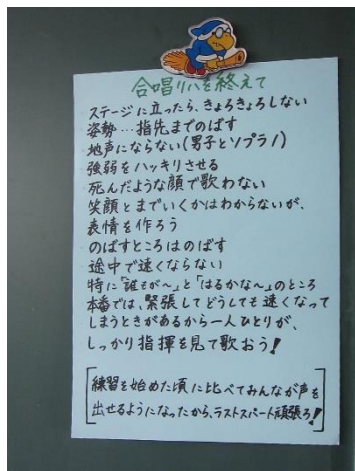 合唱リハを終えて
・ステージに立ったら、きょろきょろしない
・姿勢…指先までのばす
・地声にならない(男子とソプラノ)
・強弱をハッキリさせる
・死んだような顔で歌わない
・笑顔とまでいくかはわからないが、
表情を作ろう
・のばすところはのばす
・途中で速くならない
特に「誰もが〜」と「はるかな〜」のところ
本番では、緊張してどうしても速くなって
しまうときがあるから一人ひとりが、
しっかり指揮を見て歌おう!
練習を始めた頃に比べてみんなが声を
出せるようになったから、ラストスパート頑張ろ!